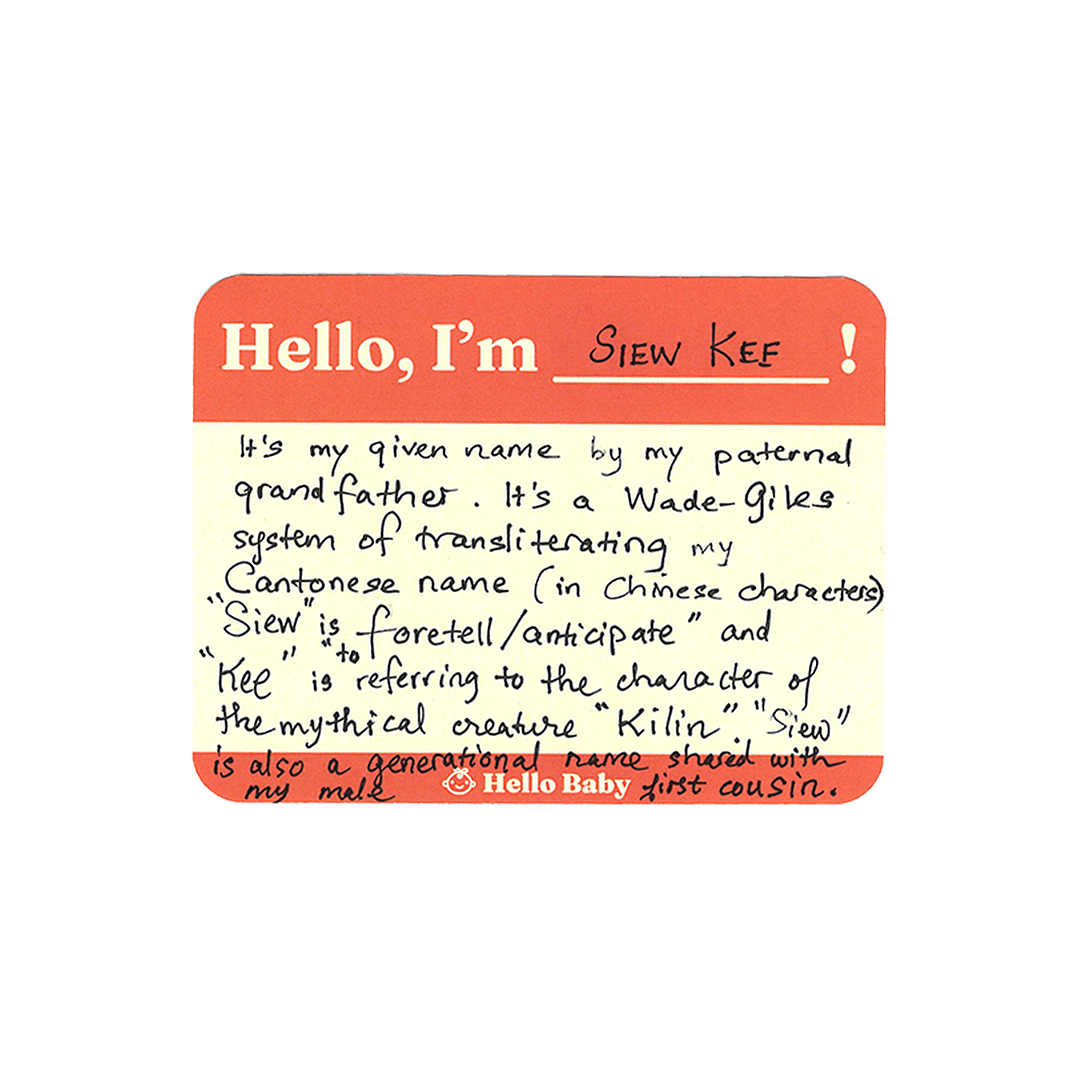 Hello, I'm SIEW KEE!
It's my given name by my paternal
grandfather. It's a Wade-Giles
system of transliterating my
Cantonese name (in Chinese characters)
"Siew" is "to foretell/anticipate" and
"Kee" is referring to the character of
the mythical creature "Kilin". "Siew"
is also a generational name shared with
my male first cousin.
Hello Baby